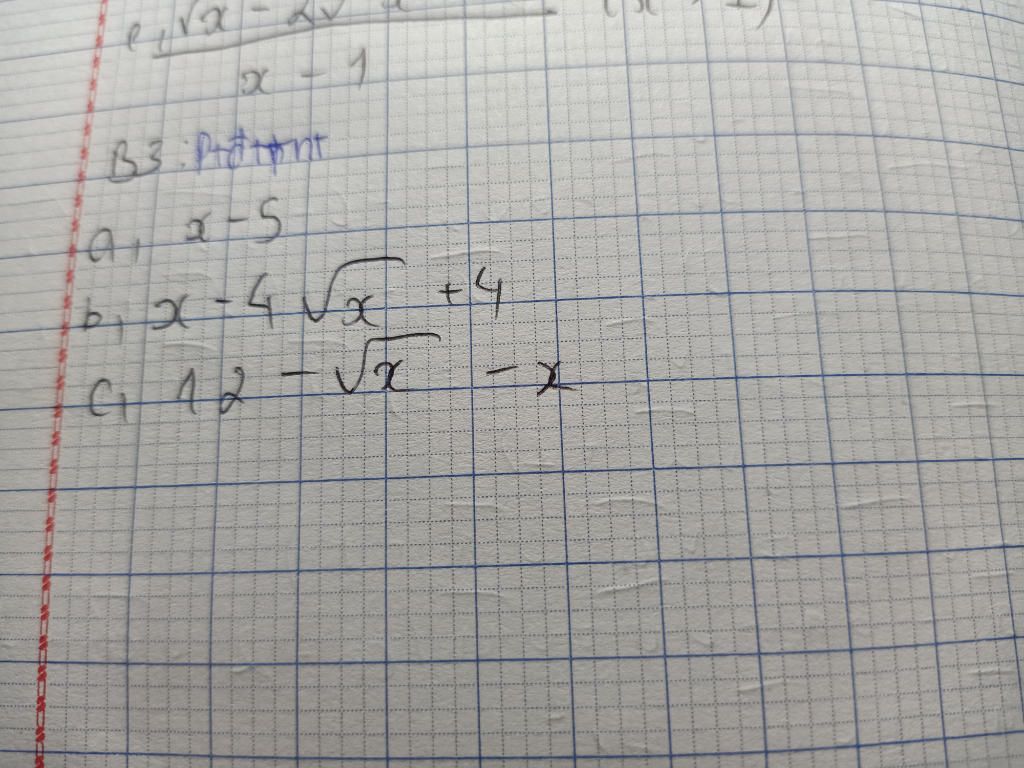 x - 1
B3: Ptđttnt
a, x - 5
b, x - 4√x + 4
c, 12 - √x - x